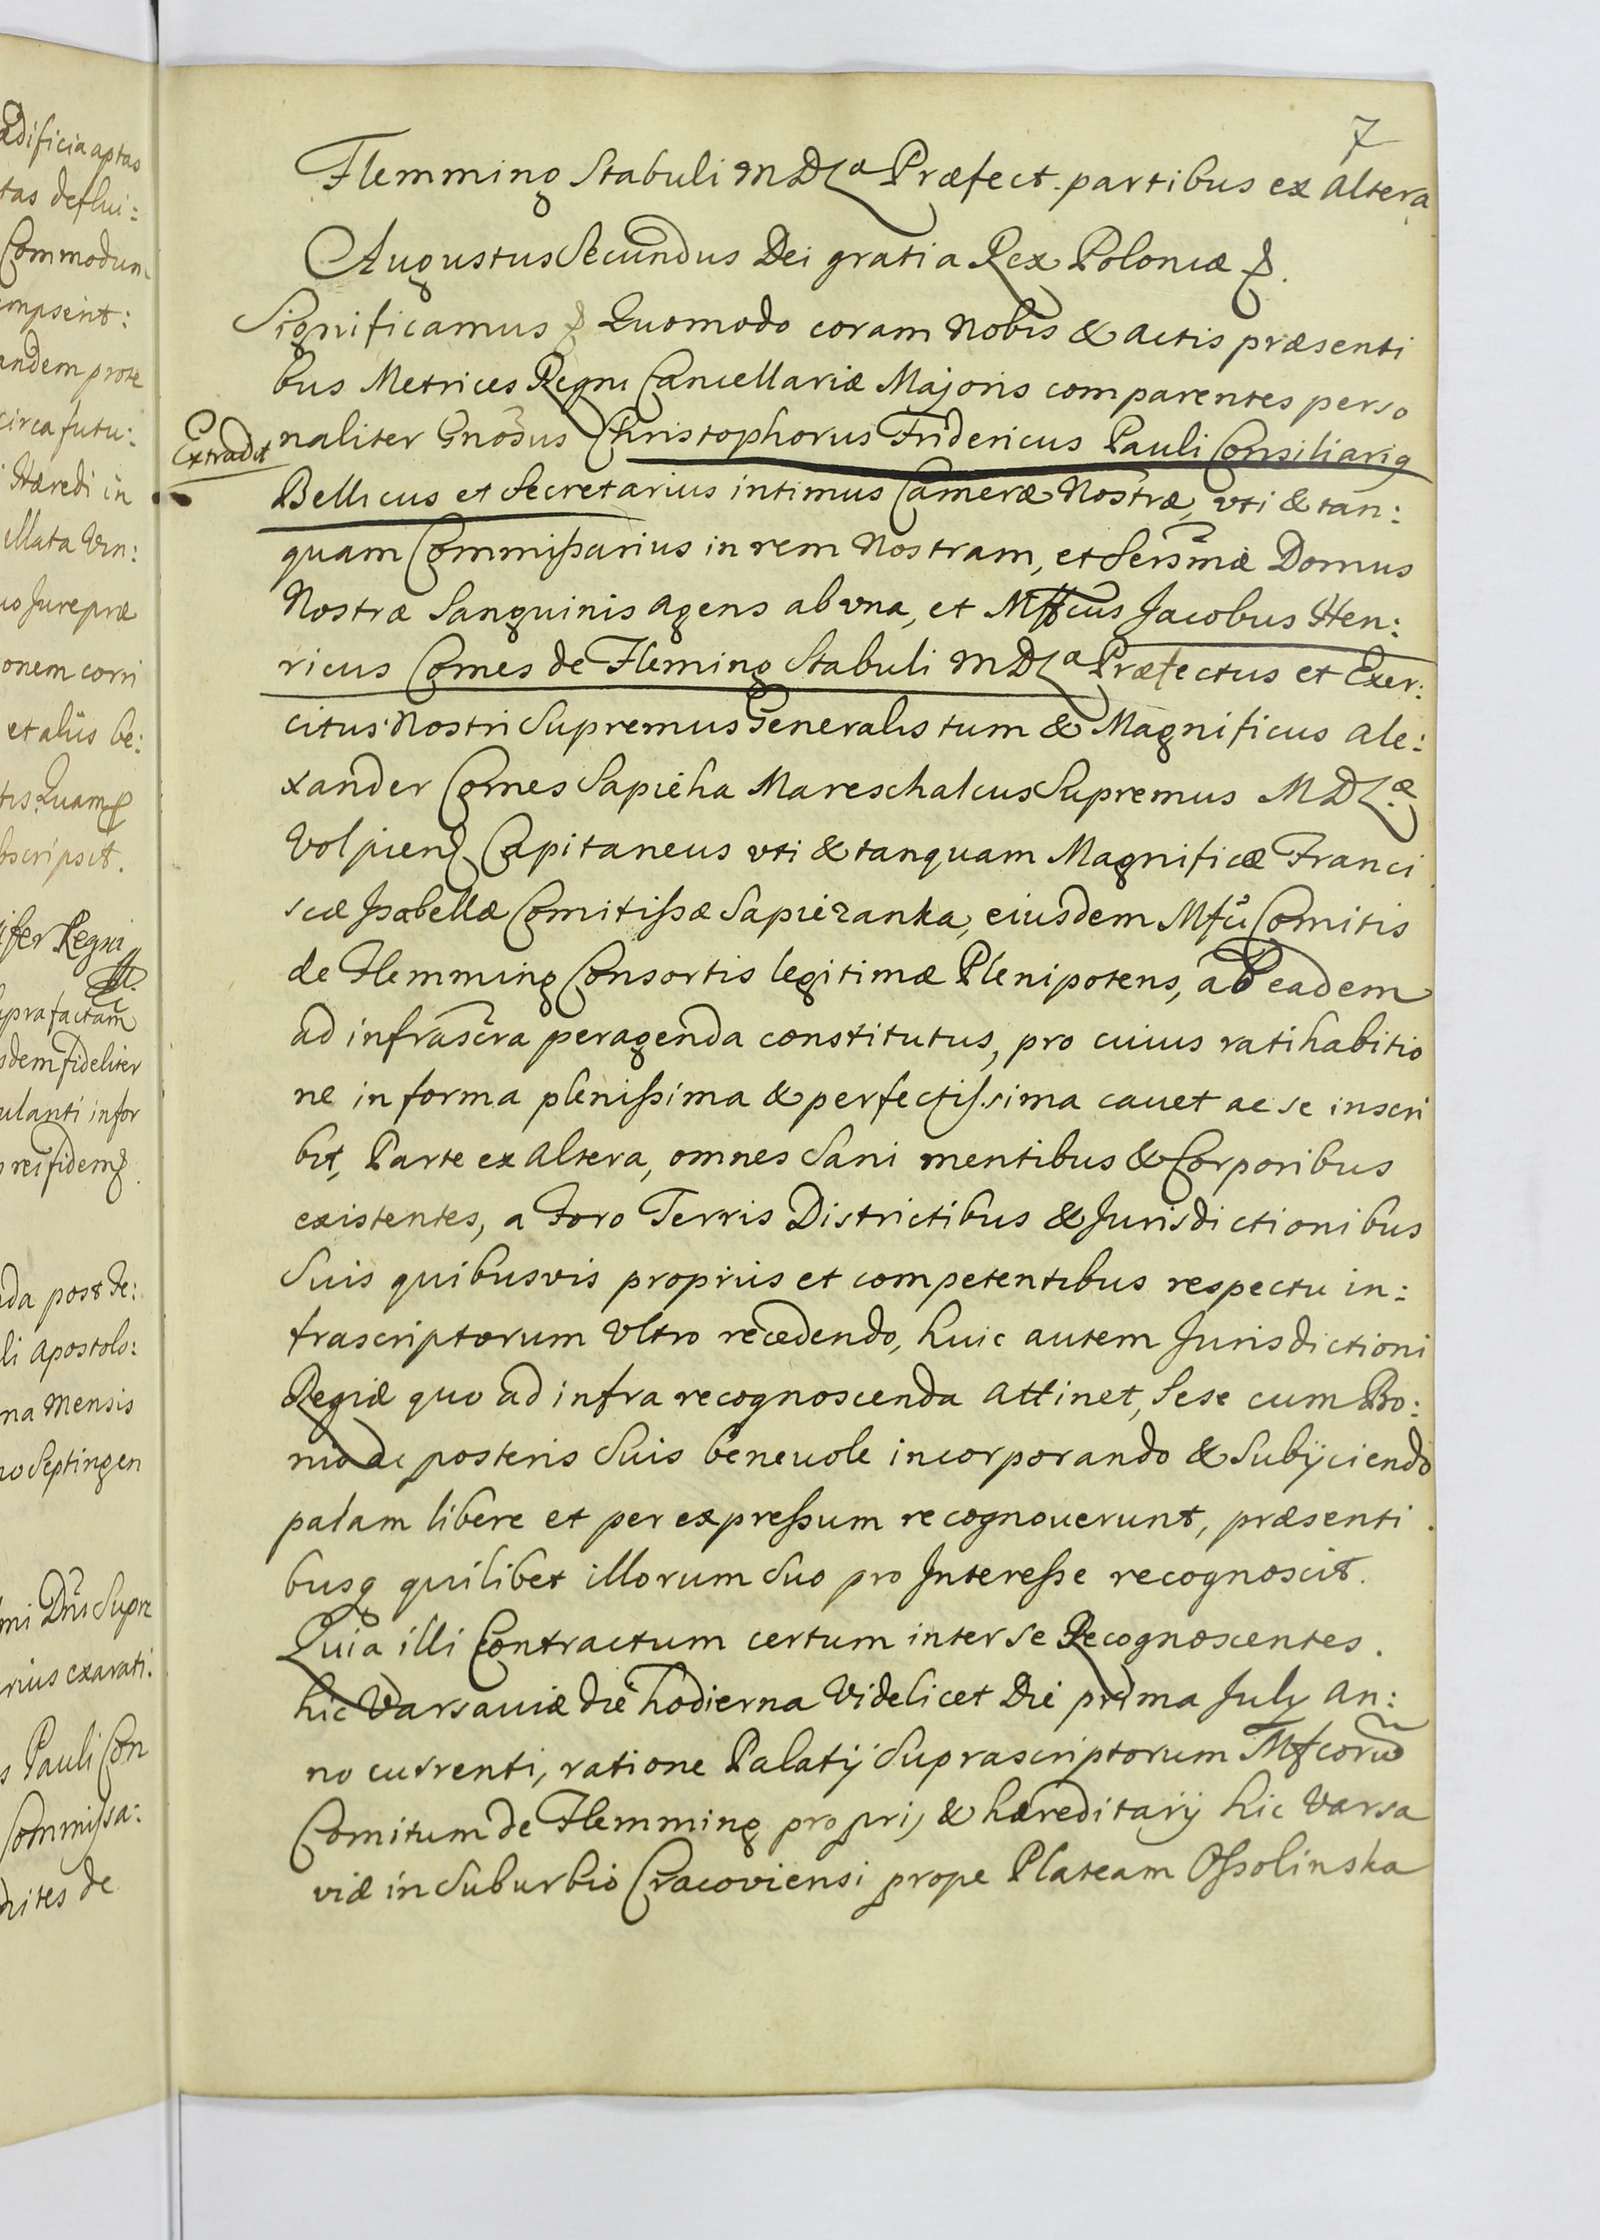 ædificia aptas
tas deflui:
Commodum
empserit:
andem prote
circa futu:
Hæredi in
illata Vin:
uo Jure præ
onem corri
et aliis be:
tis. Quam
bscripsit.
ifer Regni
supra factam
sdem fideliter
ulanti infor
rei fidem
nda post Fe:
li Apostolo:
na Mensis
no Septingen
mi Dni Supre
rius exarati.
s Pauli Con
Commissa:
mites de
7
Flemming Stabuli MDLæ Præfect. partibus ex altera
Augustus Secundus Dei gratia Rex Poloniæ &.
Significamus & Quomodo coram Nobis & actis præsenti
bus Metrices Regni Cancellariæ Majoris comparentes perso
Extradit
naliter Gnosus Christophorus Fridericus Pauli Consiliarig
Bellicus et Secretarius intimus Cameræ Nostræ, vti & tan:
quam Commissarius in rem Nostram, et Sersmæ Domus
Nostræ Sanguinis agens ab vna, et Mffcus Jacobus Hen:
ricus Comes de Fleming Stabuli MDLæ Præfectus et Exer:
citus Nostri Supremus Generalis tum & Magnificus Ale:
xander Comes Sapieha Mareschalcus Supremus MDLæ
Volpien Capitaneus vti & tanquam Magnificæ Franci
scæ Isabellæ Comitissæ Sapiezanka, eiusdem Mfci Comitis
de Flemming Consortis legitimæ Plenipotens, ab eadem
ad infrascra peragenda constitutus, pro cuius ratihabitio
ne in forma plenissima & perfectissima cauet ac se inscri
bit, Parte ex altera, omnes Sani mentibus & Corporibus
existentes, a Foro Terris Districtibus & Jurisdictionibus
Suis quibusvis propriis et competentibus respectu in:
frascriptorum Vltro recedendo, huic autem Jurisdictioni
Regiæ quo ad infra recognoscenda attinet, Sese cum Bo:
nis ac posteris Suis beneuole incorporando & Subijciendo
palam libere et per expressum recognouerunt, præsenti
busq quilibet illorum Suo pro Interesse recognoscit.
Quia illi Contractum certum inter se Recognoscentes.
hic Varsaviæ die hodierna Videlicet Die prima July An:
no currenti, ratione Palatij Suprascriptorum Mfcorum
Comitum de Flemming proprij & hæreditarij hic Varsa
viæ in Suburbio Cracoviensi prope Plateam Ossolinska